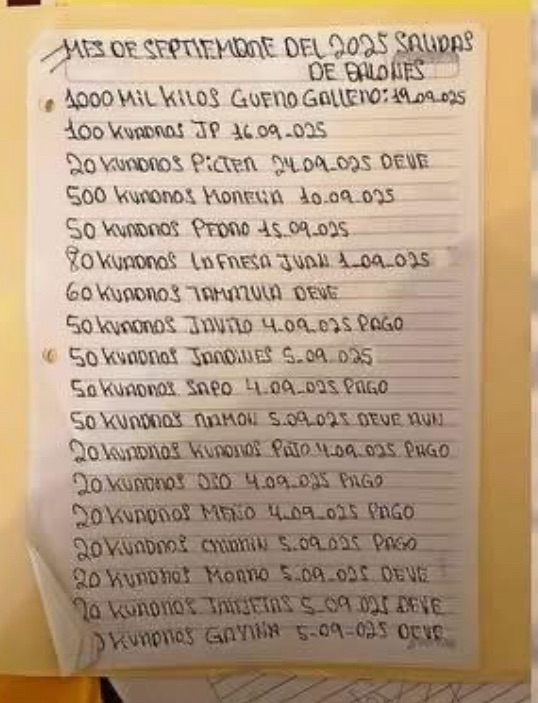 MES DE SEPTIEMBRE DEL 2025 SALIDAS
DE BALONES
1000 MIL KILOS GUERO GALLERO: 19.09.025
100 KUADROS JP 16.09.025
20 KUADROS PICTER 24.09.025 DEVE
500 KUADROS MORELIA 10.09.025
50 KUADROS PEDRO 15.09.025
80 KUADROS LA FRESA JUAN 1.09.025
60 KUADROS TAMAZULA DEVE
50 KUADROS JAVITO 4.09.025 PAGO
50 KUADROS JARDINES 5.09.025
50 KUADROS SAPO 4.09.025 PAGO
50 KUADROS RAMON 5.09.025 DEVE AUN
20 KUADROS KUADROS PATO 4.09.025 PAGO
20 KUADROS OSO 4.09.025 PAGO
20 KUADROS MEÑO 4.09.025 PAGO
20 KUADROS 5.09.025 PAGO
20 KUADROS MORRO 5.09.025 DEVE
20 KUADROS TARJETAS 5.09.025 DEVE
KUADROS GAVIÑA 5-09-025 DEVE